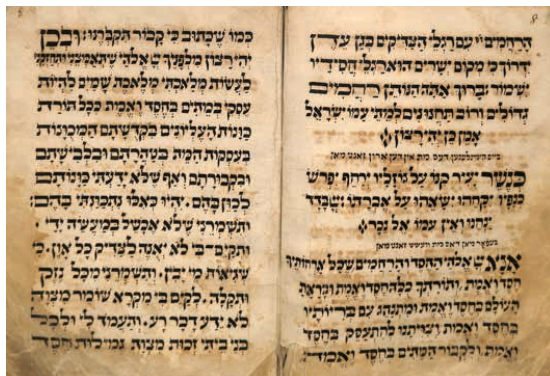 הרחמים יי עם רגלי הצדיקים בגן עדן
ידרוך כי מקום ישרים הוא רגלי חסידיו
ישמור ברוך אתה הנותן רחמים
גדולים ורוב תחנונים למתי עמו ישראל
אכן כן יהי רצון
מת אין דען ארון זאגט מאן
כנשר יעיר קנו על גוזליו ירחף יפרש
כנפיו יקחהו ישאהו על אברתו יי בדד
ינחנו ואין עמו אל נכר
מאן דאס מת וועשט זאגט מאן
אנא אלהי החסד והרחמים שכל ארחותיך
חסד ואמת, ותורתך כלה חסד ואמת ונבראת
העולם בחסד ואמת ומתנהג עם בריותיו
בחסד ואמת וצויתנו להתעסק בחסד
ואמת ולקבור המתים בחסד ואמת
כמו שכתוב כי קבור תקברנו: ובכן
יהי רצון מלפניך יי אלהי שתאמצני ותחזקני
לעשות מלאכתי מלאכת שמים להיות
עסקי במתים בחסד ואמת ככל הורת
כוונות העליונים בקדשתם המכוונות
בעסקות המת בטהרתם ובלבישתם
ובקבורתם ואף שלא ידעתי כוונותם
לכוון בהם, יהיו כאלו נתכוונתי בהם:
ותשמרני שלא אכשל במעשה ידי,
ותקיים בי לא יאנה לצדיק כל און, כי
שגיאות מי יבין, ותשמרני מכל נזק
ותקלה, לקיים בי מקרא שומר מצוה
לא ידע דבר רע, ותעמד לי ולכל
בני ביתי זכות מצות גמילות חסד